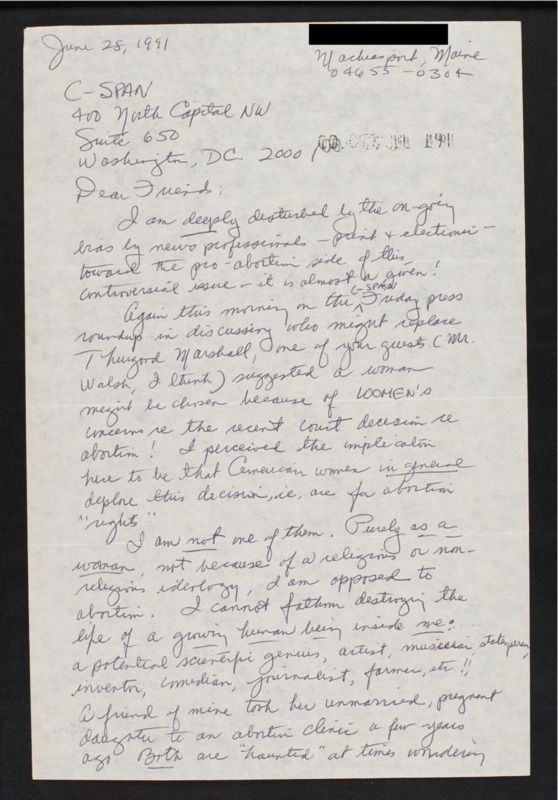 June 28, 1991
Machiasport, Maine
04655-0304
C-SPAN
400 North Capital NW
Suite 650
Washington, DC 2000
Dear Friend:
I am deeply disturbed by the on-going
bias by news professionals - print + electronic -
toward the pro-abortion side of this
controversial issue - it is almost a given!
Again this morning on the C-SPAN Friday press
roundup in discussing who might replace
Thurgood Marshall, one of your guests (Mr.
Walsh, I think) suggested a woman
might be chosen because of WOMEN'S
concerns re the recent court decision re
abortion! I perceived the implication
here to be that American women in general
deplore this decision, i.e., are for abortion
"rights"
I am not one of them. Purely as a
woman, not because of a religious or non-
religious ideology, I am opposed to
abortion. I cannot fathom destroying the
life of a growing human being inside me:
a potential scientific genius, artist, musician, statesperson,
inventor, comedian, journalist, farmer, etc!!
A friend of mine took her unmarried, pregnant
daughter to an abortion clinic a few years
ago. Both are "haunted" at times wondering